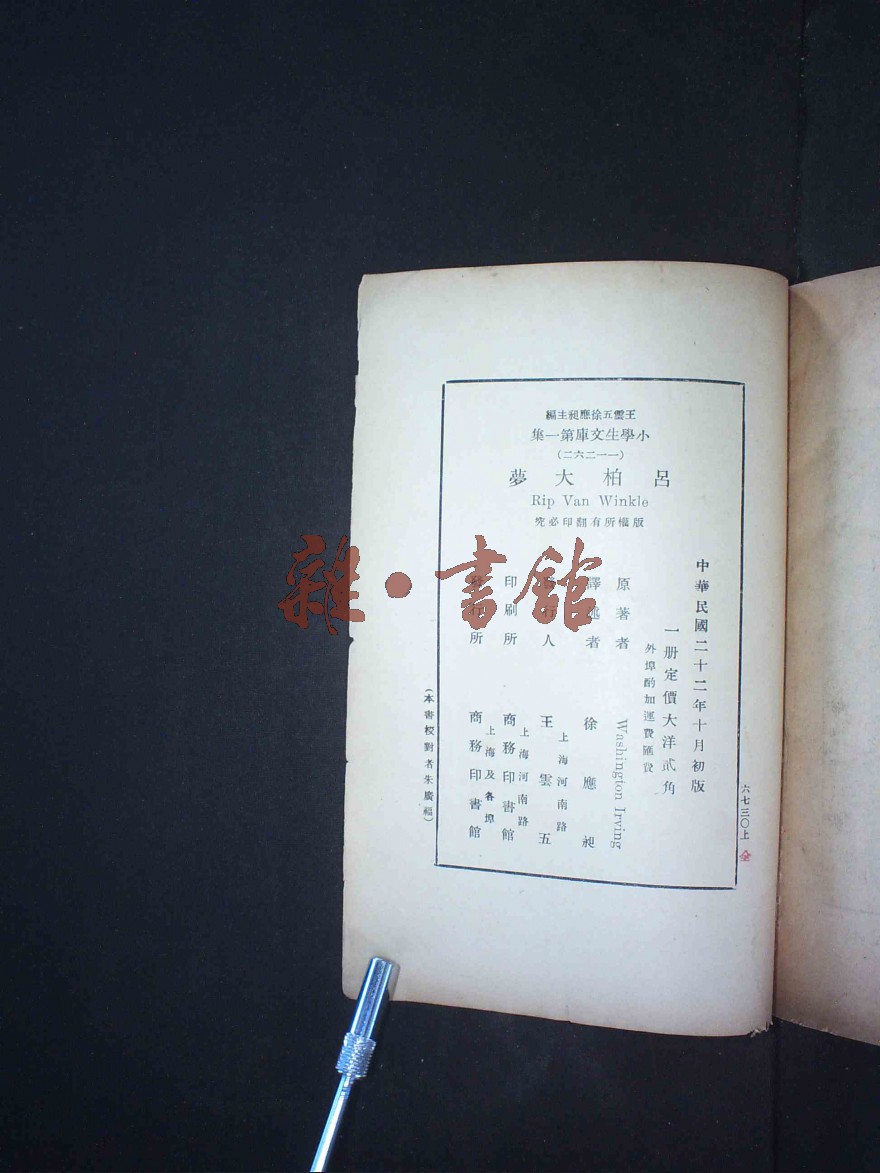 王雲五徐應昶主編
小學生文庫第一集
(一一二六二)
呂柏大夢
Rip Van Winkle
版權所有翻印必究
中華民國二十二年十月初版
一册定價大洋貳角
外埠酌加運費匯費
原著者 Washington Irving
譯述者 徐應昶
發行人 王雲五
上海河南路
印刷所 商務印書館
上海河南路
發行所 商務印書館
上海及各埠
(本書校對者朱廣福)
六七三〇上
全
雜·書館